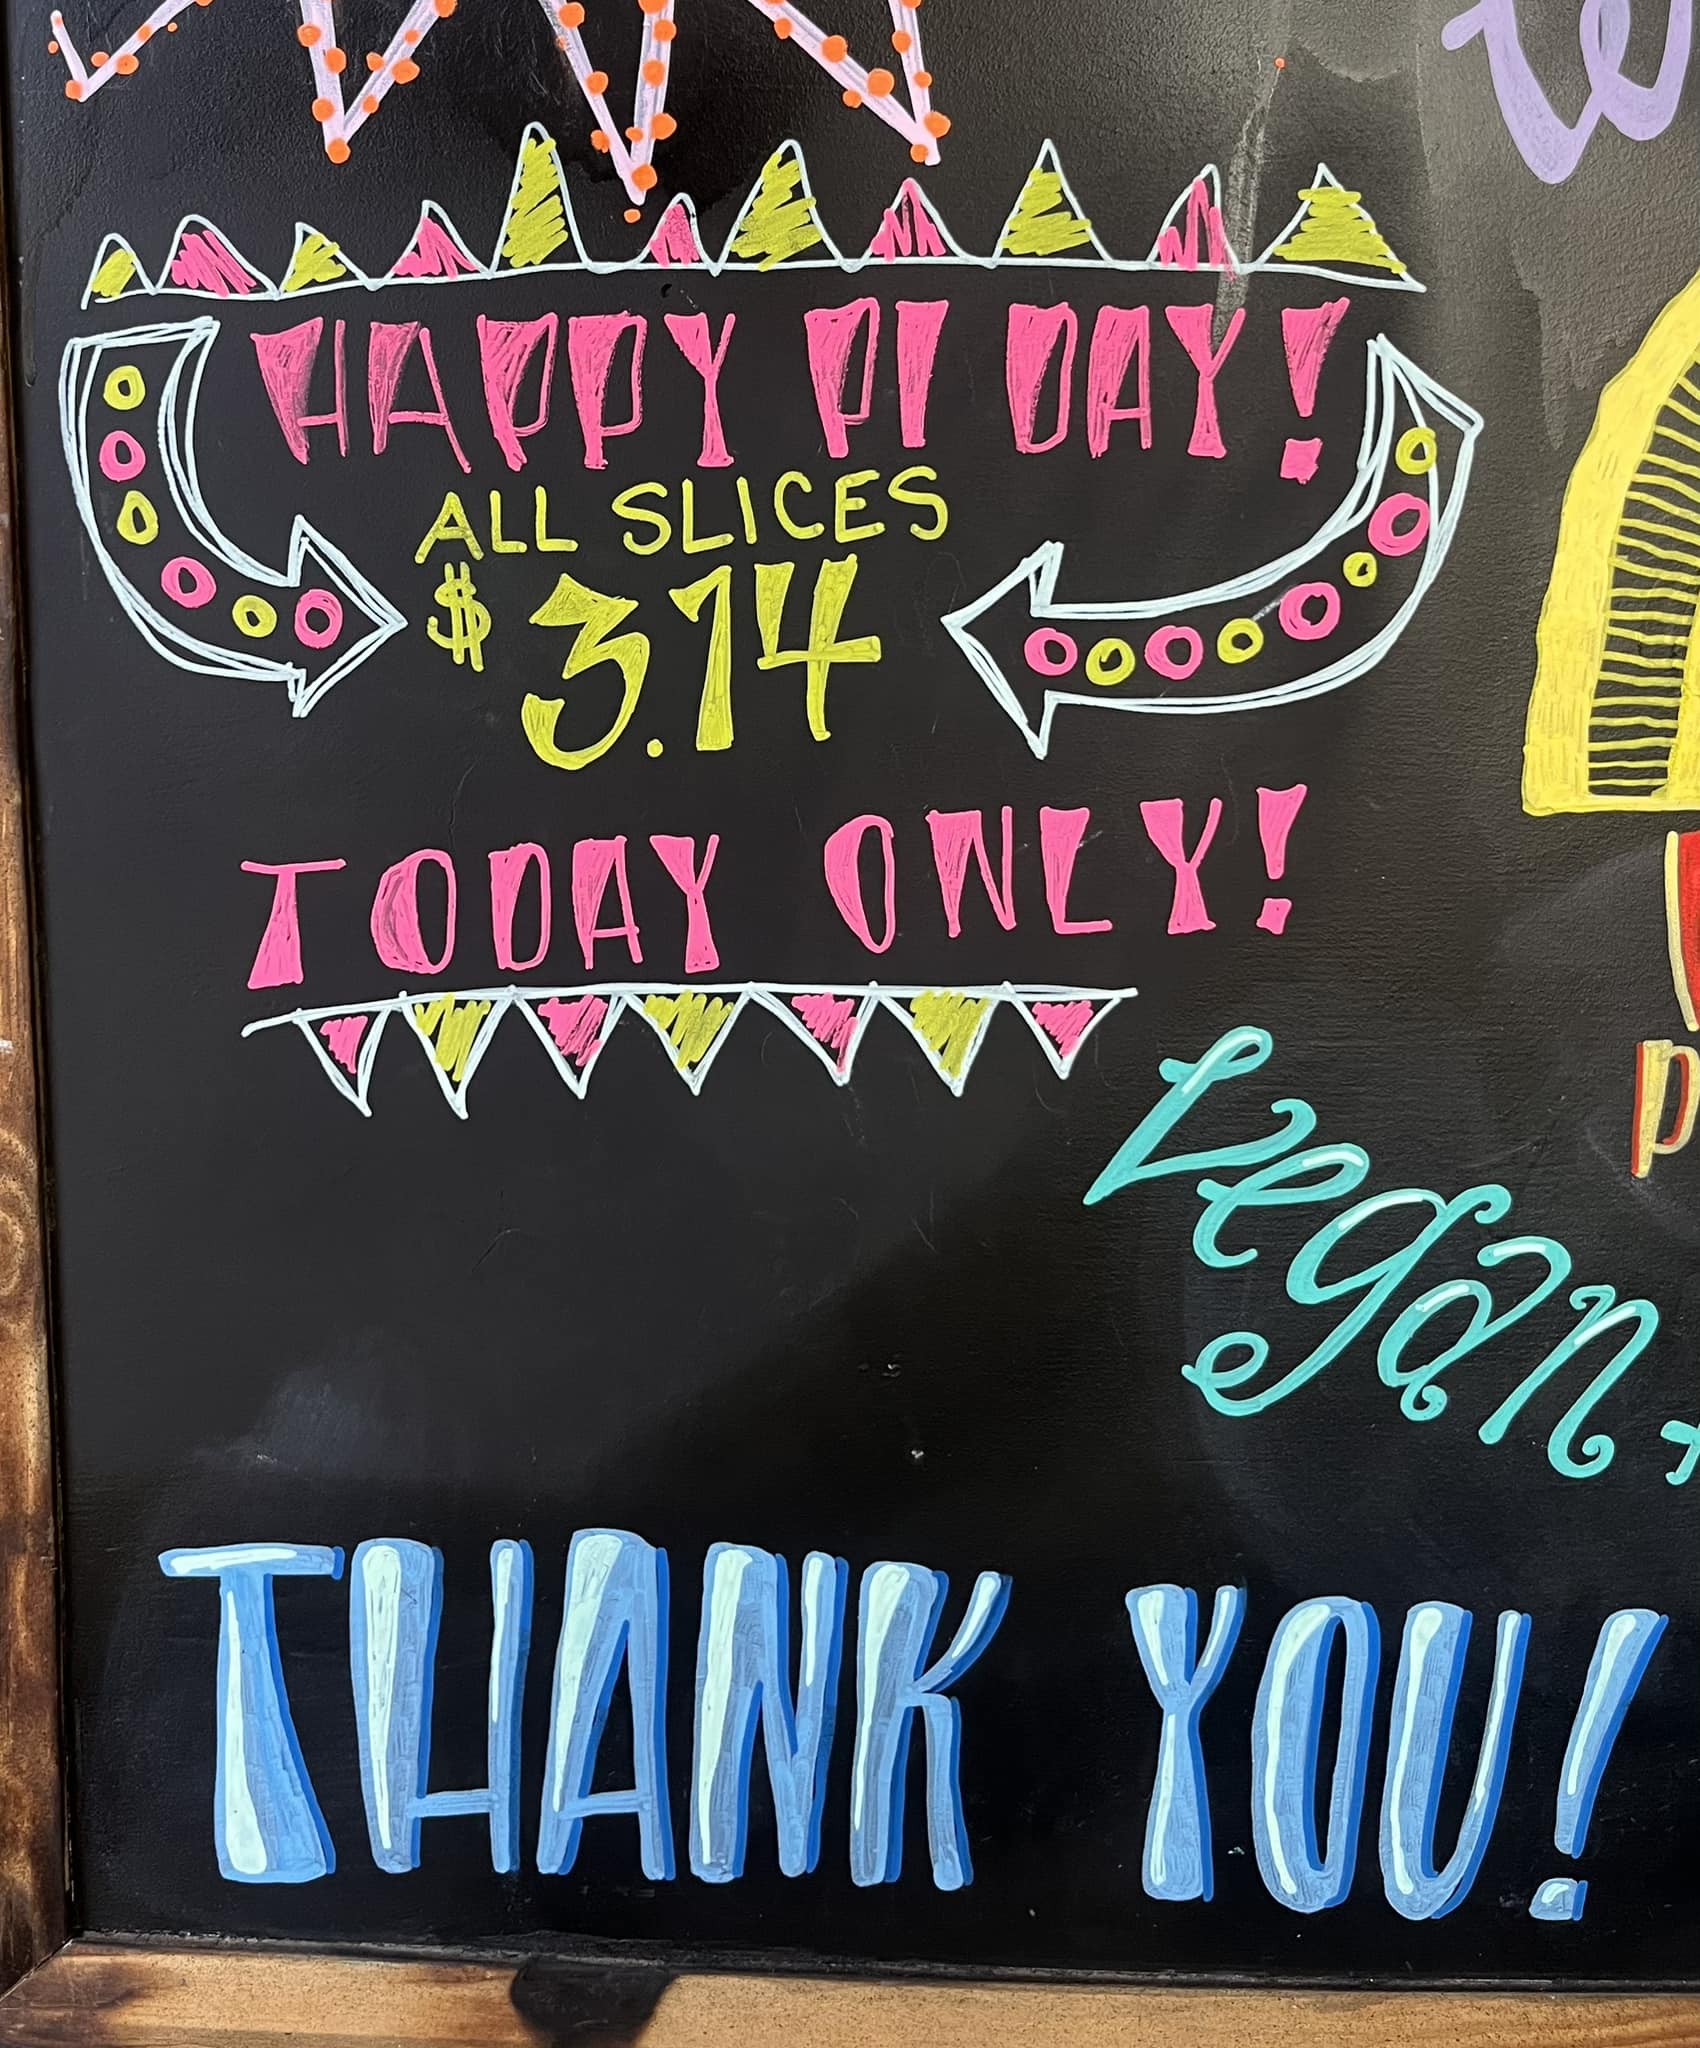 HAPPY PI DAY!
ALL SLICES
$3.14
TODAY ONLY!
vegan
THANK YOU!